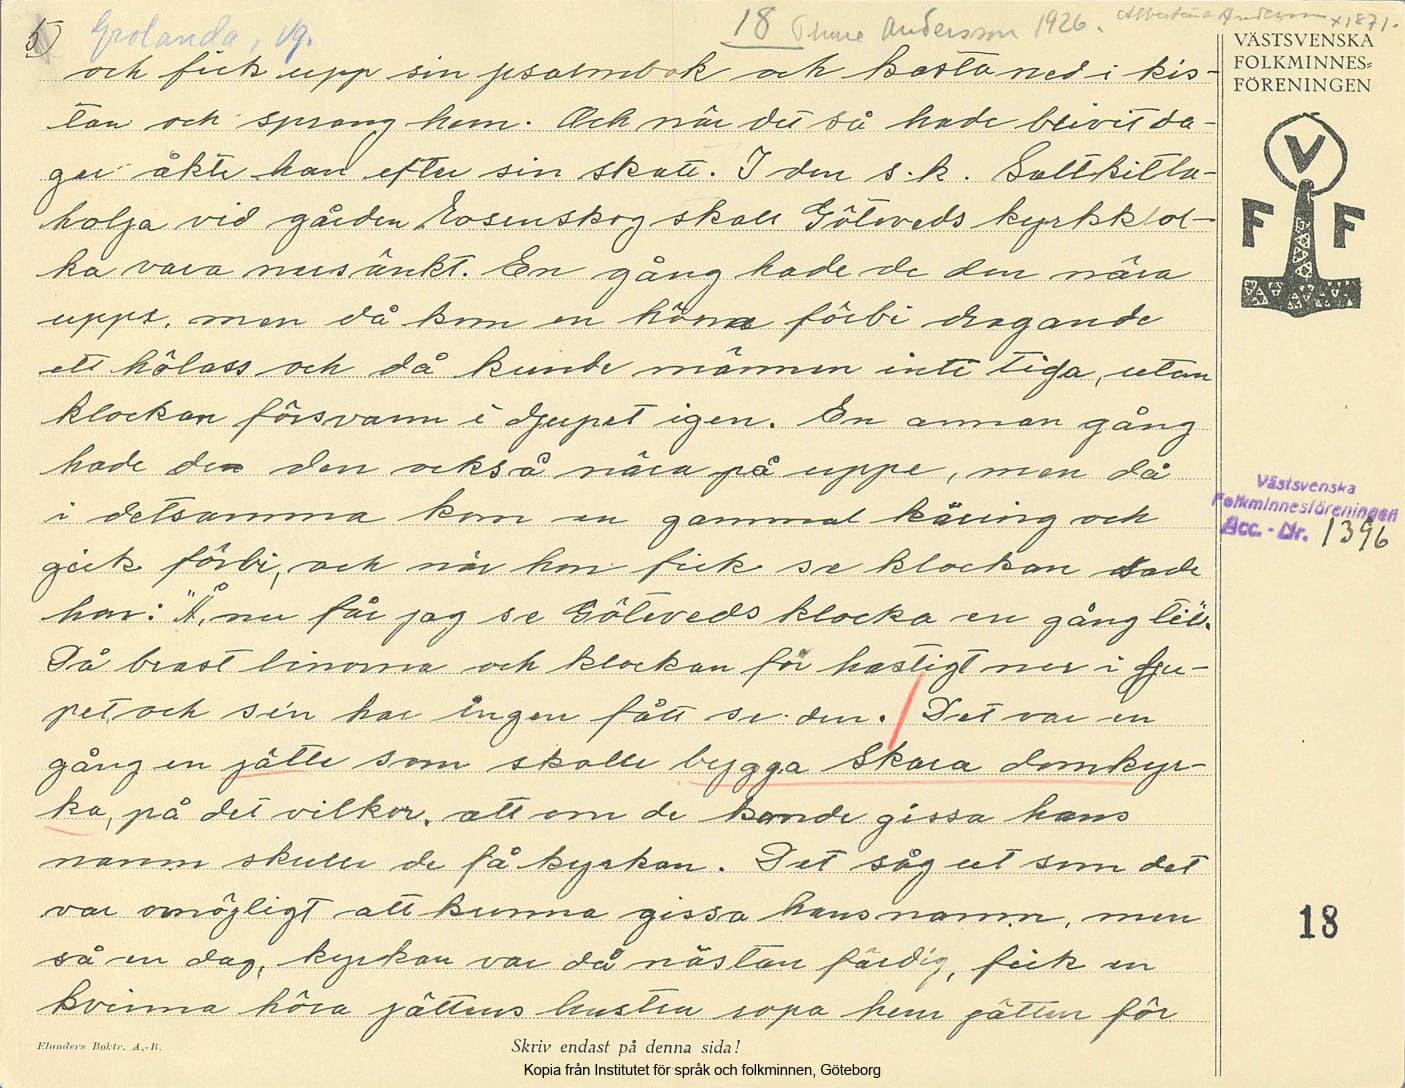 5) Grolanda, Vg. 18 Thure Andersson 1926. Albertina Andersson x 1871.
VÄSTSVENSKA
FOLKMINNES-
FÖRENINGEN
V
F F
och fick upp sin psalmbok och kasta ned i kis-
tan och sprang hem. Och när det så hade blivit da-
ger åkte han efter sin skatt. I den s.k. Saltkitta-
holja vid gården Rosenskog skall Göteveds kyrkklol-
ka vara nersänkt. En gång hade de den nära
uppe, men då kom en höna förbi dragande
ett hölass och då kunde männen inte tiga, utan
klockan försvann i djupet igen. En annan gång
hade de den också nära på uppe, men då
i detsamma kom en gammal käring och
gick förbi, och när hon fick se klockan sade
hon: "Å, nu får jag se Göteveds klocka en gång till".
Då brast linorna och klockan för hastigt ner i dju-
pet och sen har ingen fått se den. Det var en
gång en jätte som skulle bygga Skara domkyr-
ka, på det vilkor, att om de kunde gissa hans
namn skulle de få kyrkan. Det såg ut som det
var omöjligt att kunna gissa hans namn, men
så en dag, kyrkan var då nästan färdig, fick en
kvinna höra jättens hustru ropa hem jätten för
Västsvenska
Folkminnesföreningen
Acc. - Nr. 1396
18
Elanders Boktr. A.-B.
Skriv endast på denna sida!
Kopia från Institutet för språk och folkminnen, Göteborg